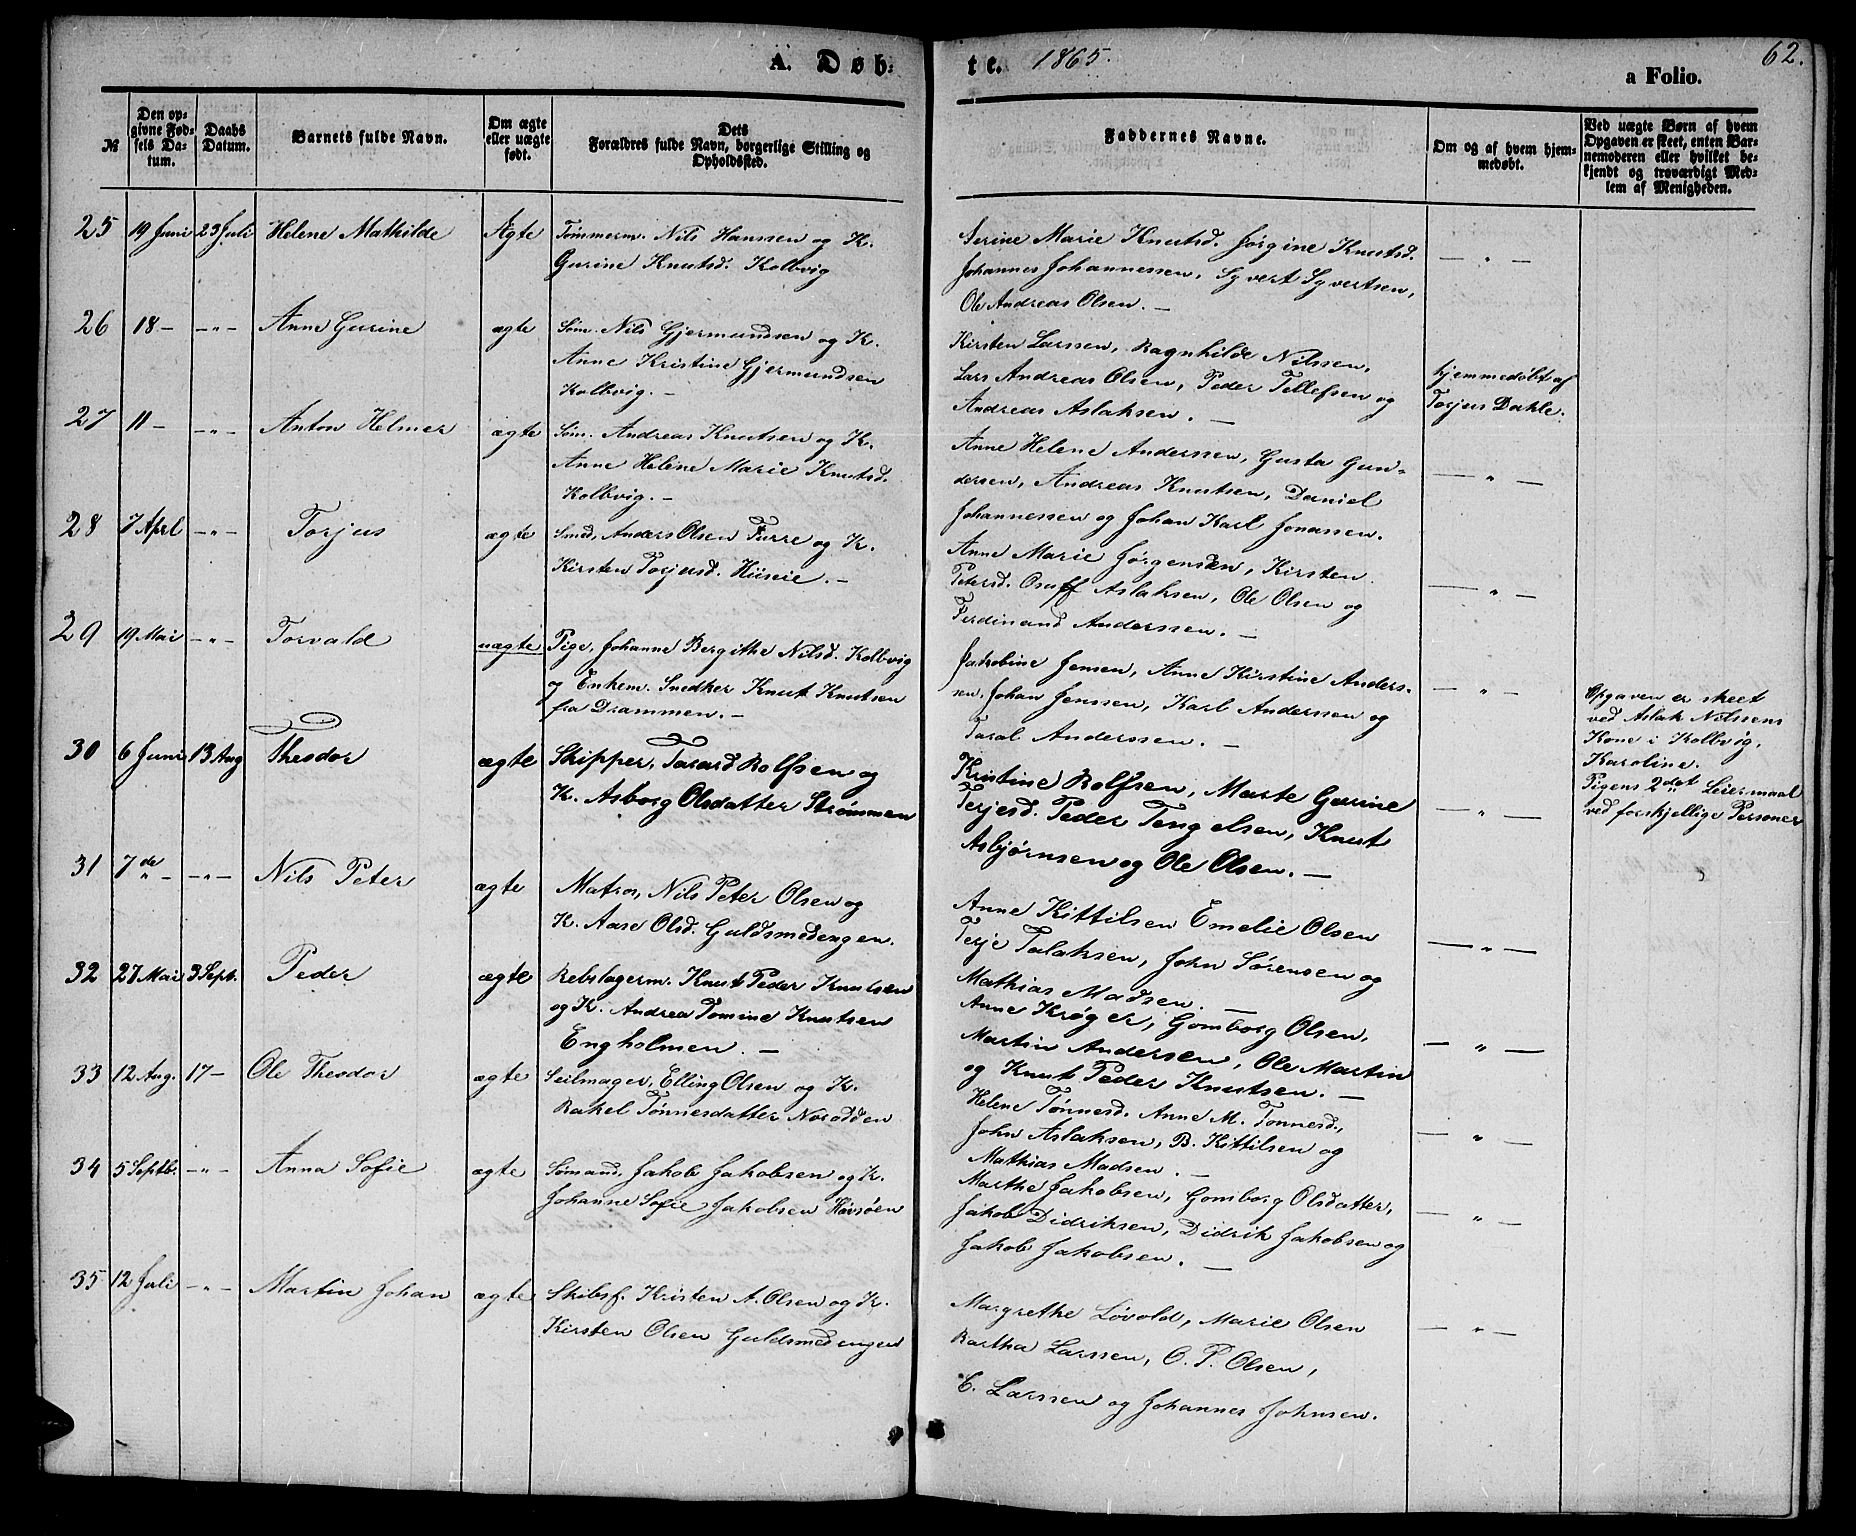 A. Døb-
te. 1865.
a Folio.
62.
№
Den op-
givne Fød-
sels Da-
tum.
Daabs
Datum.
Barnets fulde Navn.
Om ægte
eller uægte
født.
Dets
Forældres fulde Navn, borgerlige Stilling og
Opholdssted.
Faddernes Navne.
Om og af hvem hjem-
medøbt.
Ved uægte Børn af hvem
Opgaven er skeet, enten Bar-
nemoderen eller hvilket be-
kjendt og troværdigt Med-
lem af Menigheden.
25 19 Juni 23 Juli Helene Mathilde Ægte Tømmerm. Nils Hanssen og K.
Gurine Knutsd. Kolbvig
Serine Marie Knutsd. Jørgine Knutsd.
Johannes Johannessen, Syvert Syvertsen,
Ole Andreas Olsen. —
— " —
26 18 — — " — Anne Gurine ægte Søm. Nils Gjermundsen og K.
Anne Kristine Gjermundsen
Kolbvig. —
Kirsten Larssen, Ragnhilde Nilssen,
Lars Andreas Olsen, Peder Tellefsen og
Andreas Aslaksen. —
hjemmedøbt af
Torjus Dahle.
27 11 — — " — Anton Helmer ægte Søm. Andreas Knutsen og K.
Anne Helene Marie Knutsd.
Kolbvig. —
Anne Helene Anderssen, Gusta Gun-
dersen, Andreas Knutsen, Daniel
Johannessen og Johan Karl Jonassen.
— " —
28 7 Aprl — " — Torjus ægte Smed, Anders Olsen Furre og K.
Kirsten Torjusd. Hiiseie. —
Anne Marie Jørgensen, Kirsten
Petersd. Osuff Aslaksen, Ole Olsen og
Ferdinand Anderssen. —
— " —
29 19 Mai — " — Torvald uægte Pige, Johanne Bergithe Nilsd. Kolbvig
og Enkem. Snedker Knut Knutsen
fra Drammen. —
Jakobine Jensen, Anne Kirstine Anders-
sen, Johan Jenssen, Karl Anderssen og
Taral Anderssen. —
— " —
Opgaven er skeet
ved Aslak Nilssens
Kone i Kolbvig,
Karoline.
Pigens 2det Leiermaal
ved forskjellige Personer
30 6 Juni 13 Aug Theodor ægte Skipper, Tarard Rolfsen og
K. Asborg Olsdatter Strømmen
Kristine Rolfsen, Marte Gurine
Terjesd. Peder Tengelsen, Knut
Asbjørnsen og Ole Olsen. —
— " —
31 7de " — — " — Nils Peter ægte Matros, Nils Peter Olsen og
K. Aase Olsd. Guldsmedengen.
Anne Kittilsen Emelie Olsen
Terje Talaksen, John Sørensen og
Mathias Madsen. —
— " —
32 27 Mai 3 Sept. Peder ægte Rebslagerm. Knut Peder Knutsen
og K. Andrea Tomine Knutsen
Engholmen. —
Anne Krøger, Gomborg Olsen,
Martin Andersen, Ole Martin
og Knut Peder Knutsen. —
— " —
33 12 Aug. 17 — Ole Theodor ægte Seilmager, Elling Olsen og K.
Rakel Tønnesdatter Norodden
Helene Tønnesd. Anne M. Tønnesd.,
John Aslaksen, B. Kittilsen og
Mathias Madsen. —
— " —
34 5 Septb. — " — Anna Sofie ægte Sømand, Jakob Jakobsen og K.
Johanne Sofie Jakobsen Havsøen
Marthe Jakobsen, Gomborg Olsdatter,
Jakob Didriksen, Didrik Jakobsen og
Jakob Jakobsen. —
— " —
35 12 Juli — " — Martin Johan ægte Skibsf. Kristen A. Olsen og K.
Kirsten Olsen Guldsmedengen
Margrethe Løvold, Marie Olsen
Bartha Larssen, O. P. Olsen,
E. Larssen og Johannes Johnsen.
— " —